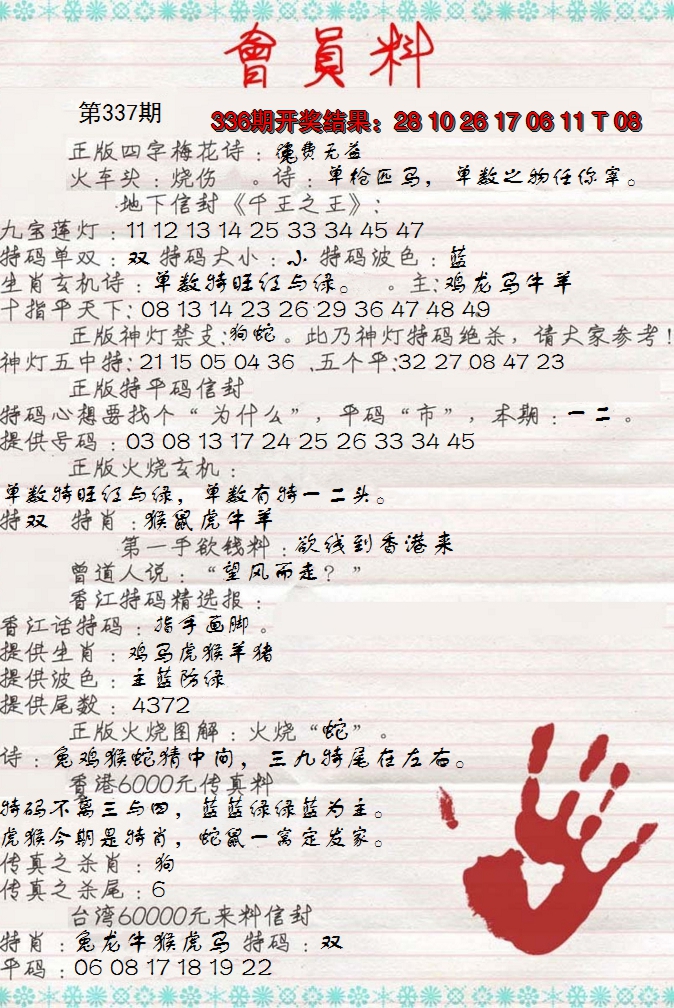 會員料
第337期
336期开奖结果：28 10 26 17 06 11 T 08
正版四字梅花诗：徒费无益
火车头：烧伤 。诗：单枪匹马，单数之物任你宰。
地下信封《千王之王》：
九宝莲灯：11 12 13 14 25 33 34 45 47
特码单双：双 特码大小：小 特码波色：蓝
生肖玄机诗：单数特旺红与绿。 。主:鸡龙马牛羊
十指平天下：08 13 14 23 26 29 36 47 48 49
正版神灯禁支:狗蛇。此乃神灯特码绝杀，请大家参考！
神灯五中特：21 15 05 04 36 .五个平:32 27 08 47 23
正版特平码信封
特码心想要找个“为什么”，平码“市”，本期：一二。
提供号码：03 08 13 17 24 25 26 33 34 45
正版火烧玄机：
单数特旺红与绿，单数有特一二头。
特双 特肖：猴鼠虎牛羊
第一手欲钱料：欲钱到香港来
曾道人说：“望风而走？”
香江特码精选报：
香江话特码：指手画脚。
提供生肖：鸡马虎猴羊猪
提供波色：主蓝防绿
提供尾数：4372
正版火烧图解：火烧“蛇”。
诗：兔鸡猴蛇猜中间，三九特尾在左右。
香港6000元传真料
特码不离三与四，蓝蓝绿绿蓝为主。
虎猴今期是特肖，蛇鼠一窝定发家。
传真之杀肖：狗
传真之杀尾：6
台湾60000元来料信封
特肖：兔龙牛猴虎马 特码：双
平码：06 08 17 18 19 22